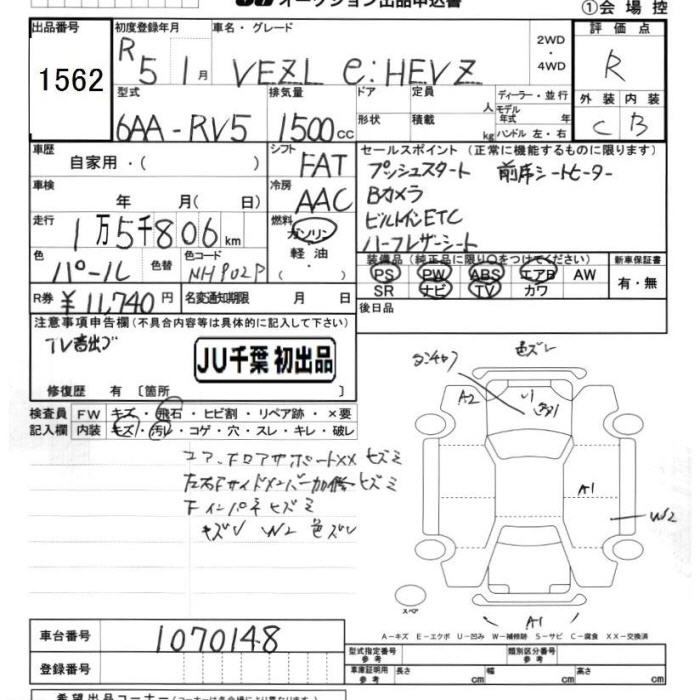 オークション出品申込書
①会場控
出品番号
1562
初度登録年月
R5 1月
車名・グレード
VEZL e:HEVZ
2WD
・
4WD
評価点
R
外装 内装
C B
型式
6AA-RV5
排気量
1500cc
ドア
形状
定員 人
積載 kg
ディーラー・並行
モデル
年式 年
ハンドル 左・右
車歴
自家用・( )
シフト
FAT
車検
年 月( 日)
冷房
AAC
走行
1万5千806km
燃料
ガソリン
軽油・
( )
色
パール
色替
色コード
NH902P
R券 ¥11,740円
名変通知期限 月 日
セールスポイント (正常に機能するものに限ります)
プッシュスタート 前席シートヒーター
Bカメラ
ビルトインETC
ハーフレザーシート
装備品(純正品に限り○をつけてください)
PS PW ABS エアB AW
SR ナビ TV カワ
新車保証書
有・無
後日品
注意事項申告欄(不具合内容等は具体的に記入して下さい)
TV音出ズ
JU千葉 初出品
修復歴 有 [箇所 ]
検査員
記入欄
FW キズ・飛石・ヒビ割・リペア跡・×要
内装 キズ・汚レ・コゲ・穴・スレ・キレ・破レ
コア、FロアサポートXX ヒズミ
左右Fサイドメンバー加修ヒズミ
Fインパネ ヒズミ
キズ W2 色ズレ
色ズレ
A2
U1
A1
W2
A1
スペア
A−キズ E−エクボ U−凹み W−補修跡 S−サビ C−腐食 XX−交換済
車台番号
1070148
登録番号
型式指定番号
参考
類別区分番号
参考
車庫証明用
参考
長さ cm
幅 cm
高さ cm
希望出品コーナー